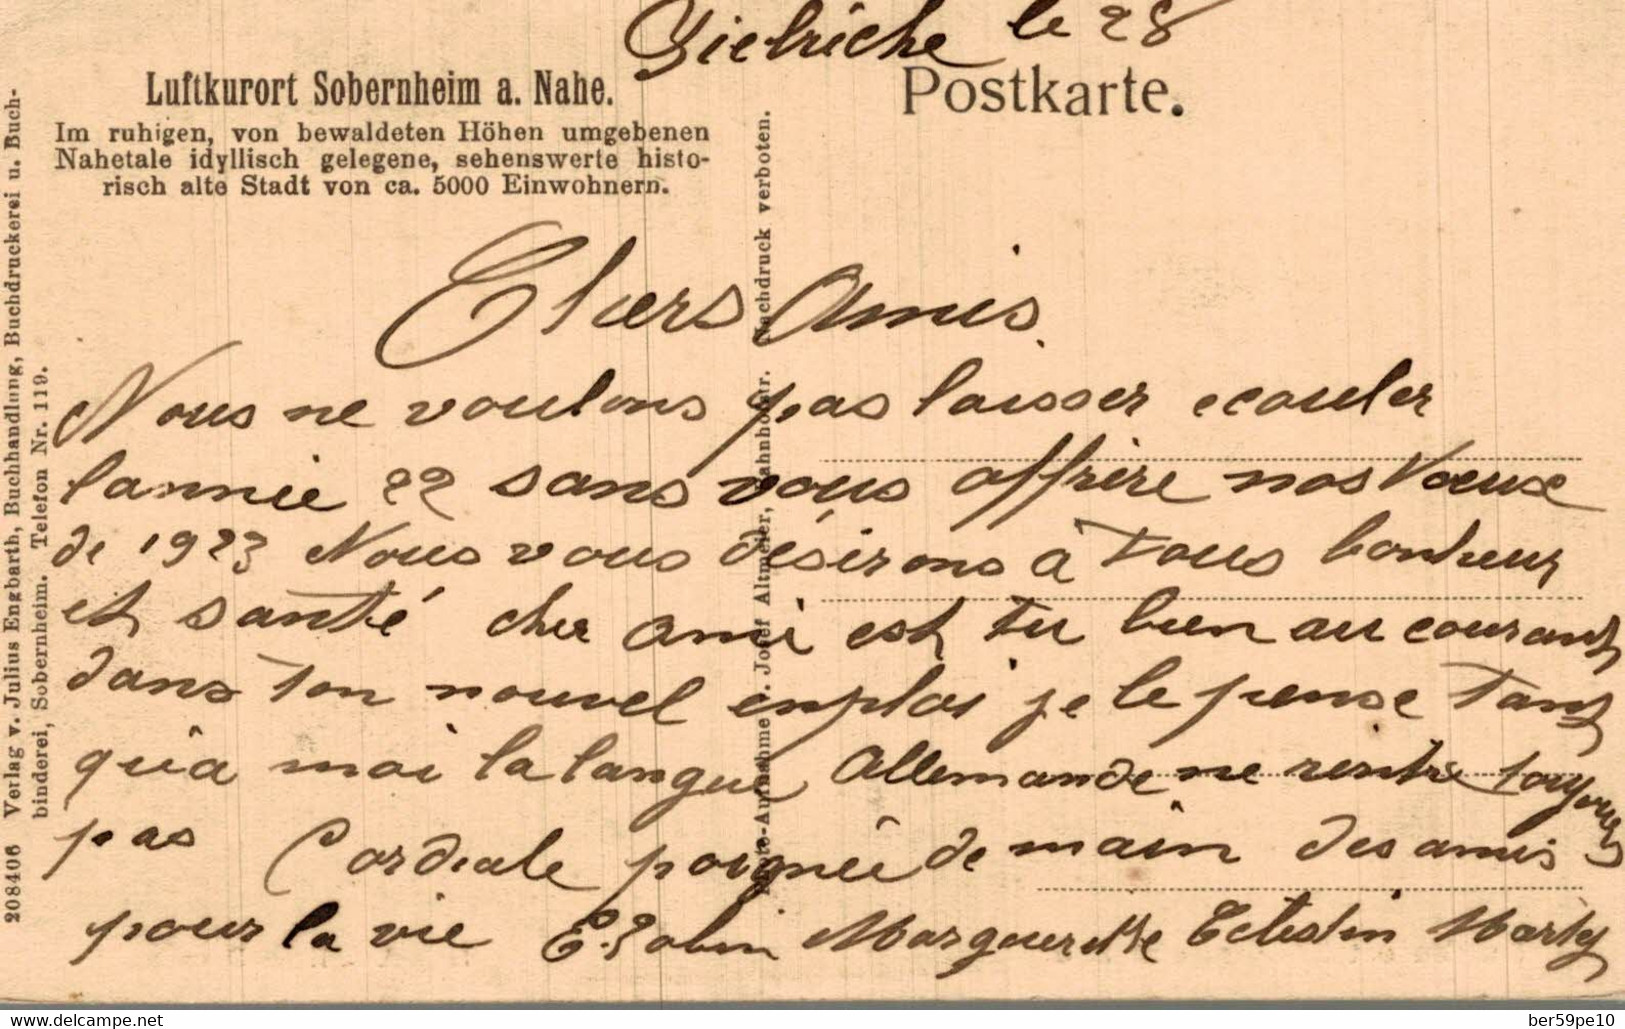 le 28
Postkarte.
Luftkurort Sobernheim a. Nahe.
Im ruhigen, von bewaldeten Höhen umgebenen
Nahetale idyllisch gelegene, sehenswerte histo-
risch alte Stadt von ca. 5000 Einwohnern.
Chers Amis
Nous ne voulons pas laisser ecouler
lannie 22 sans vous offrire nos Vœux
de 1923 Nous vous désirons à tous bonheur
et santé cher ami est tu bien au courant
dans ton nouvel enploi je le pense tant
qu'a moi la langue Allemande ne rentre toujours
pas Cordiale poignée de main des amis
pour la vie Marguerite Celestin Marty
208406 Verlag v. Julius Engbarth, Buchhandlung, Buchdruckerei u. Buch-
binderei, Sobernheim. Telefon Nr. 119.
Foto-Aufnahme v. Josef Altmeier, Bahnhofstr. Nachdruck verboten.
www.delcampe.net
ber59pe10